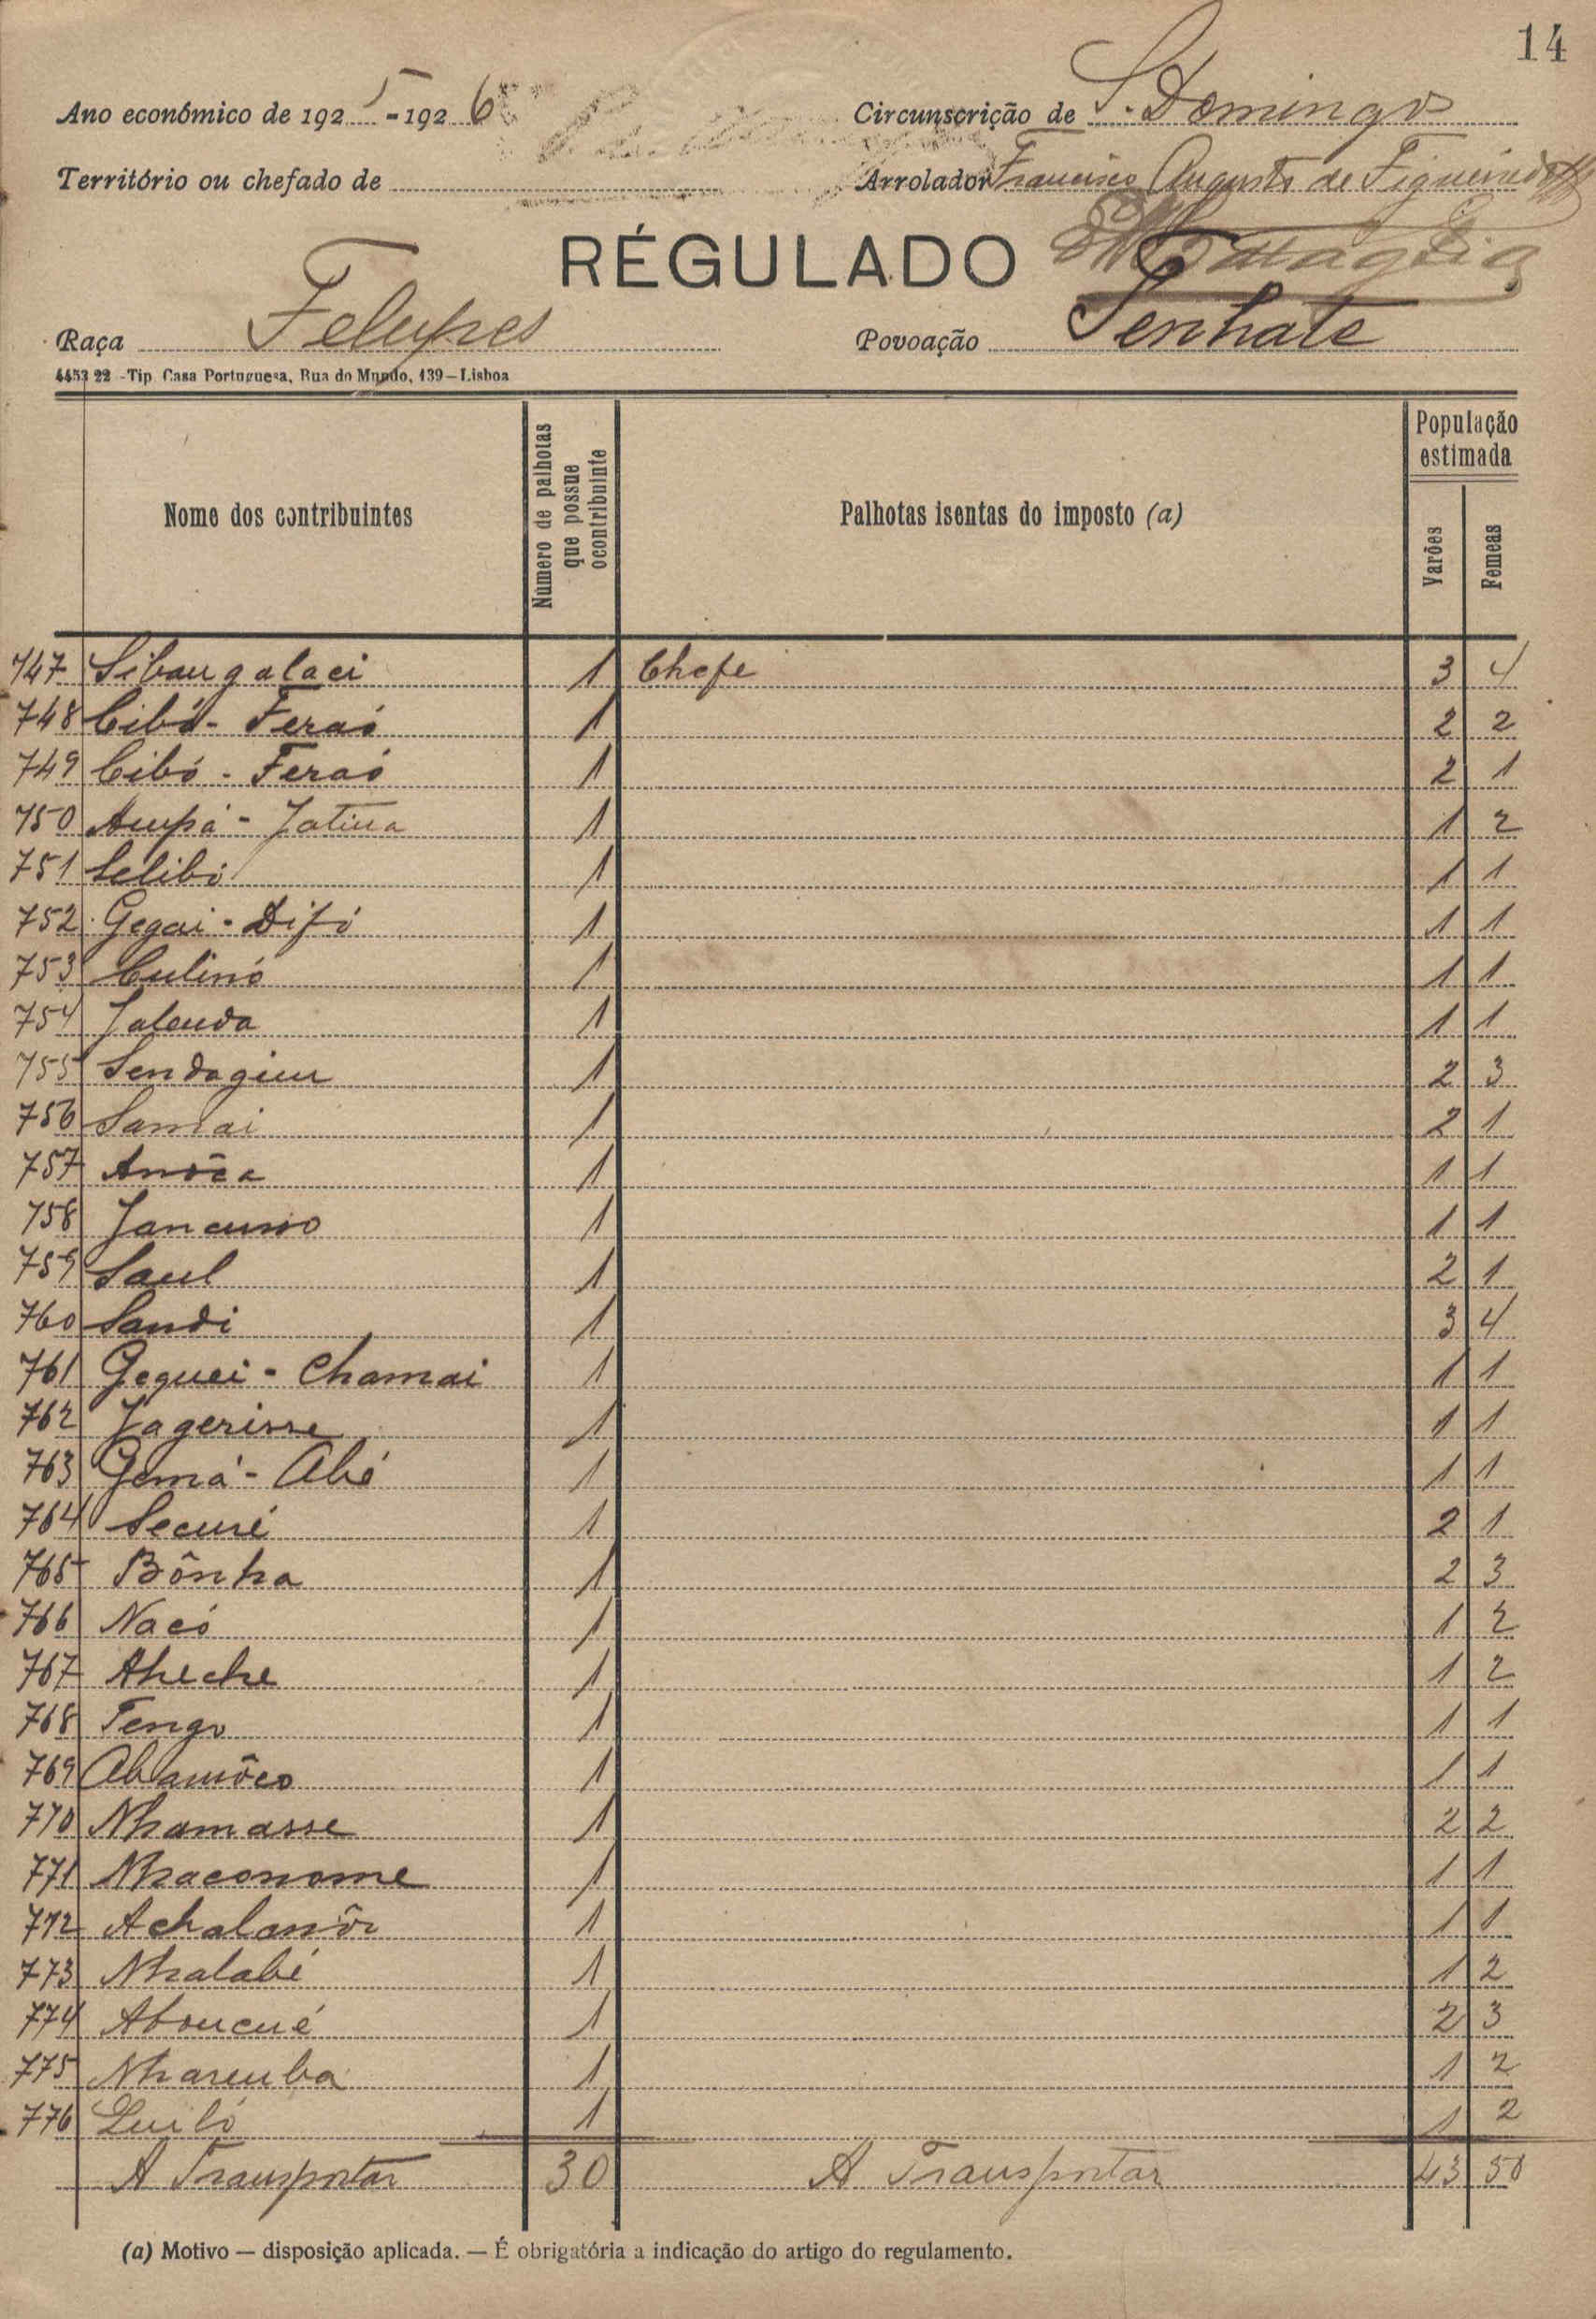 14
Ano económico de 1925-1926
Circunscrição de S. Domingos
Território ou chefado de
Arrolador Francisco Augusto de Figueiredo
RÉGULADO
Raça Felupes
Povoação Tenhate
4453 22 -Tip. Casa Portuguesa, Rua do Mundo, 139—Lisboa
Nome dos contribuintes
Número de palhotas que possue o contribuinte
Palhotas isentas do imposto (a)
População estimada
Varões
Femeas
747 Sibaugalaci 1 Chefe 3 4
748 Cibó - Feraó 1 2 2
749 Cibó - Feraó 1 2 1
750 Aupá - Jatiua 1 1 2
751 Selibó 1 1 1
752 Gegai - Difó 1 1 1
753 Culinó 1 1 1
754 Jalenda 1 1 1
755 Sendagiur 1 2 3
756 Samai 1 2 1
757 Anôca 1 1 1
758 Jancumo 1 1 1
759 Saul 1 2 1
760 Sandi 1 3 4
761 Geguei - Chamai 1 1 1
762 Jagerisse 1 1 1
763 Gemá - Abé 1 1 1
764 Securé 1 2 1
765 Bônha 1 2 3
766 Nacó 1 1 2
767 Aheche 1 1 2
768 Tengo 1 1 1
769 Abamôco 1 1 1
770 Nhamasse 1 2 2
771 Nhaconome 1 1 1
772 Achalanôr 1 1 1
773 Nhalabé 1 1 2
774 Aboucué 1 2 3
775 Nharemba 1 1 2
776 Luiló 1 1 2
A Transportar 30 A Transportar 43 50
(a) Motivo — disposição aplicada. — É obrigatória a indicação do artigo do regulamento.